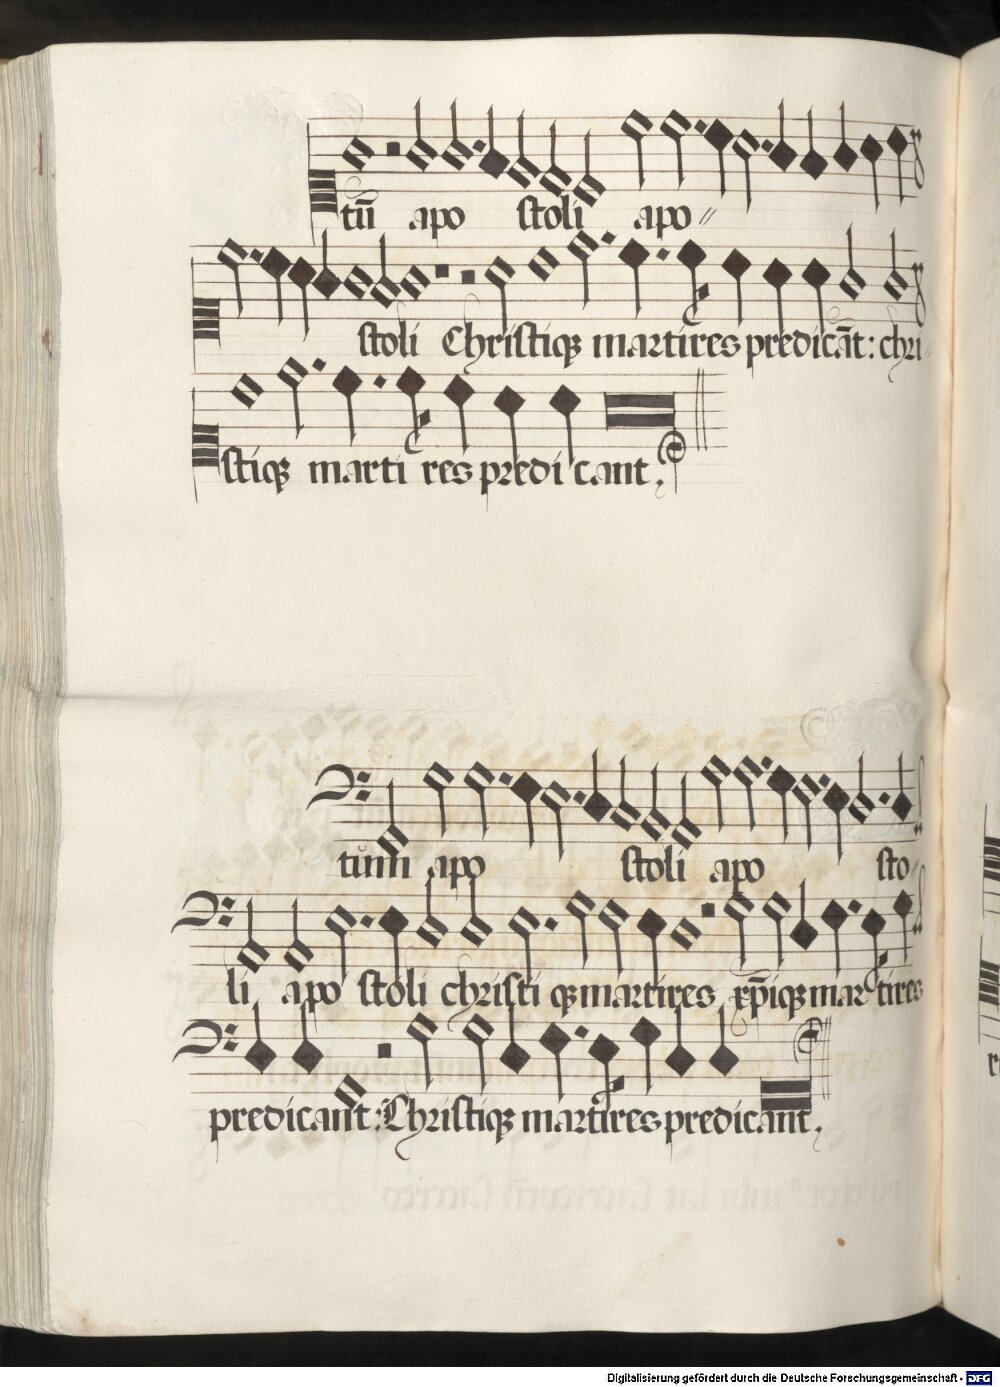 tū̄ apo stoli apo〃
stoli Christiqꝫ martires predicāt: chri〃
stiqꝫ marti res predi cant.
tum apo stoli apo sto〃
li apo stoli christi qꝫ martires xp̄iqꝫ martires
predicant: Christiqꝫ martires predicant.
Digitalisierung gefördert durch die Deutsche Forschungsgemeinschaft - DFG